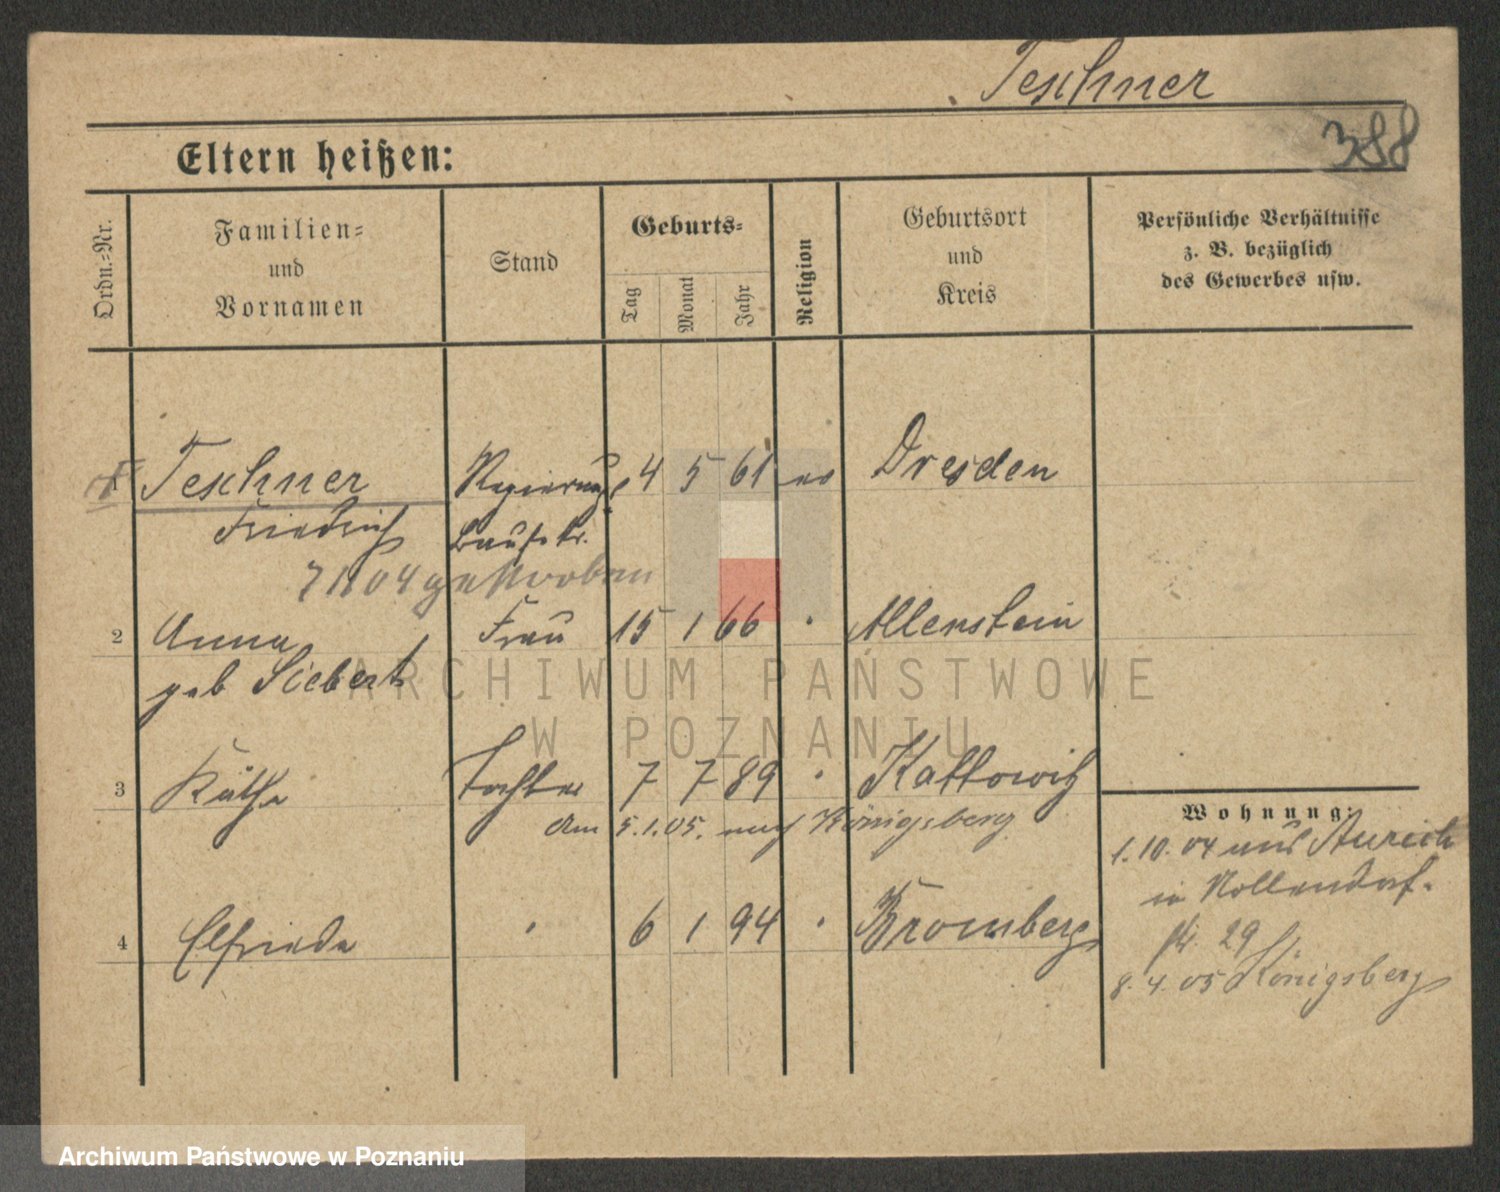 Teschner
388
Eltern heißen:
Ordn.-Nr.
Familien-
und
Vornamen
Stand
Geburts-
Tag
Monat
Jahr
Religion
Geburtsort
und
Kreis
Persönliche Verhältnisse
z. B. bezüglich
des Gewerbes usw.
Teschner Regierungs 4 5 61 ev Dresden
Friedrich Bausekr.
04 gestorben
2 Anna Frau 15 1 66 " Allenstein
geb Siebert
3 Käthe Tochter 7 7 89 " Kattowitz
am 5.1.05. nach Königsberg
4 Elfriede " 6 1 94 " Bromberg
Wohnung:
1.10.04 aus Aurich
in Nollendorf-
str. 29
8.4.05 Königsberg
ARCHIWUM PAŃSTWOWE
W POZNANIU
Archiwum Państwowe w Poznaniu